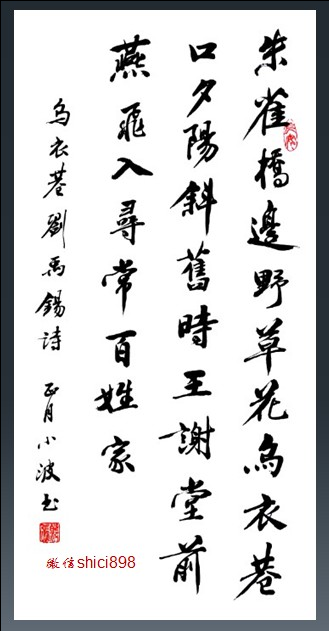 朱雀橋邊野草花烏衣巷
口夕陽斜舊時王謝堂前
燕飛入尋常百姓家
烏衣巷劉禹錫詩 正月小波书
微信shici898